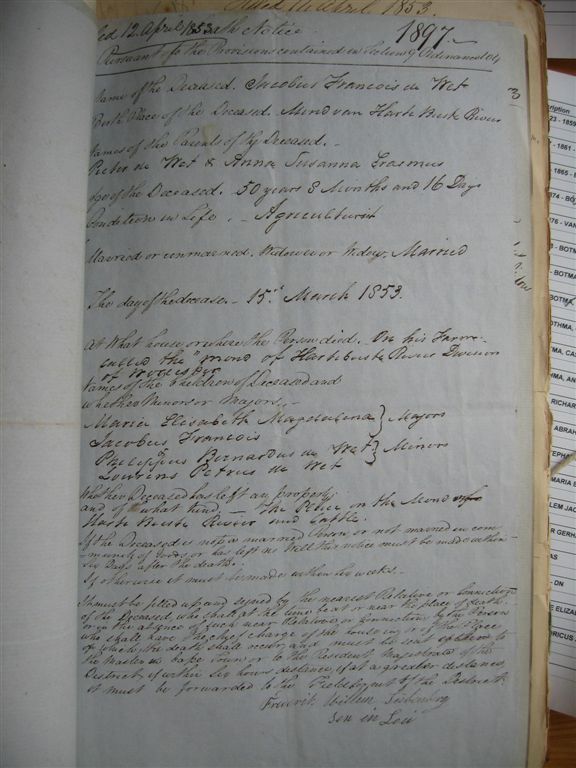 Filed 14 April 1853
12 April 1853 Death Notice 1897
Pursuant to the Provisions contained in Section 9 Ordinance 104
Name of the Deceased. Jacobus Francois de Wet
Birth Place of the Deceased. Mond van Harte Beest Rivier
Names of the Parents of the Deceased. -
Pieter de Wet & Anna Susanna Erasmus
Age of the Deceased. 50 years 8 Months and 16 Days
Condition in Life. - Agriculturist
Married or unmarried, Widower or Widow. Married
The day of the decease. - 15th March 1853.
At What house or where the Person died. On his Farm
called the "Mond of Hartebeeste Rivier Division
of Worcester
Names of the Children of Deceased and
whether Minors or Majors. -
Maria Elisabeth Magdalena } Majors
Jacobus Francois
Philippus Bernardus de Wet } Minors
Lourens Petrus de Wet
Whether Deceased has left any property
and of what kind - The Place on the Mond
Harte Beeste Rivier and Cattle.
If the Deceased is not a married Person or not married in com-
munity of Goods or has left no Will this notice must be made within
six Days after the death. -
If otherwise it must be made within six weeks. -
It must be filled up and signed by the nearest Relative or Connection
of the Deceased, who shall at the time be at or near the place of death
or in the absence of such near Relative or Connection by the Person
who shall have the chief charge of the house in or of the Place
on which the death shall occur and must be sent either to
the Master in Cape Town, or to the Resident Magistrate of the
District, if within six hours distance, if at a greater distance,
it must be forwarded to the Fieldcornet of the District.
Frederik Willem
Son in Law
ription
23 - 1859
- 1861 -
1865 - B
974 - BO
76 - VAN
- BOTM
- BOTMA
BOTMA,
OTHMA,
TMA, CA
HMA, AN
RICHAR
ABRAH
TEPHAN
MARIA E
LEM JAC
R GERHA
AS
- DN
E ELIZAB
ORICUS